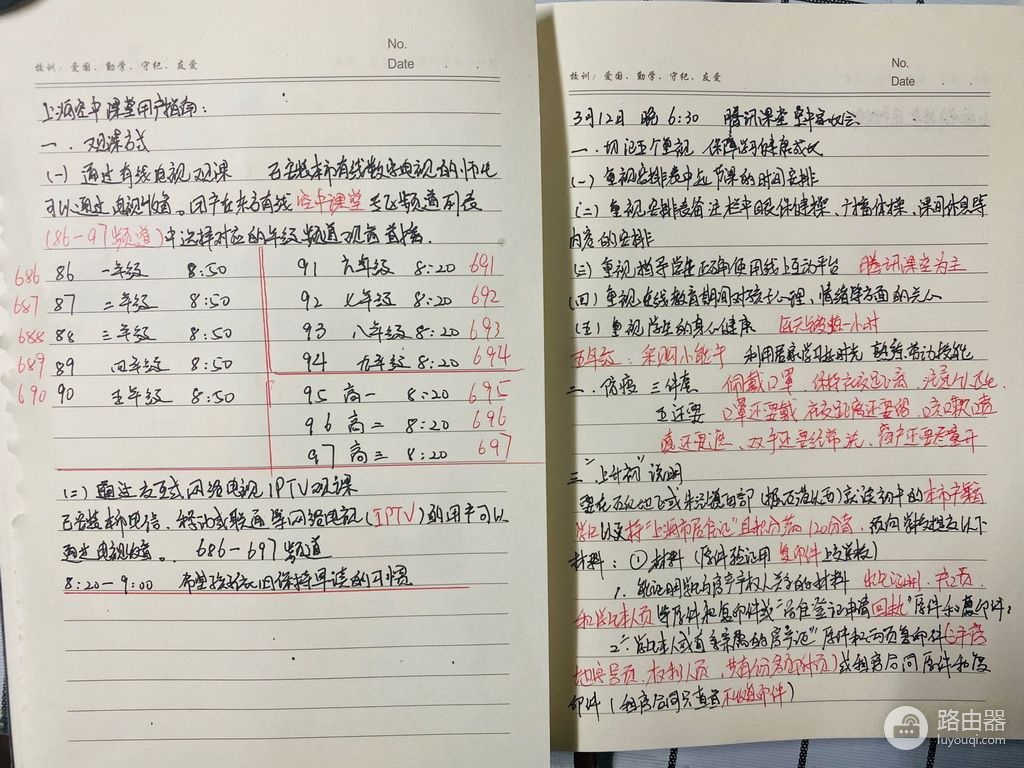 No.
校训：爱国、勤学、守纪、友爱
Date
上海空中课堂用户指南：
一．观课方式
(一) 通过有线电视观课 已安装本市有线数字电视的师生
可以通过电视收看。用户在东方有线空中课堂专区频道列表
(86-97频道)中选择对应的年级频道观看直播．
686 86 一年级 8:50 91 六年级 8:20 691
687 87 二年级 8:50 92 七年级 8:20 692
688 88 三年级 8:50 93 八年级 8:20 693
689 89 四年级 8:50 94 九年级 8:20 694
690 90 五年级 8:50 95 高一 8:20 695
96 高二 8:20 696
97 高三 8:20 697
(二) 通过交互式网络电视IPTV观课
已安装本市电信、移动或联通等网络电视(IPTV)的用户可以
通过电视收看． 686-697频道
8:20-9:00 希望孩子依旧保持早读的习惯
No.
校训：爱国、勤学、守纪、友爱
Date
3月12日 晚6:30 腾讯课堂空中家长会
一．切记五个重视 保障学习健康成长
(一) 重视安排表中每节课的时间安排
(二) 重视安排表备注栏中眼保健操、广播体操、课间休息等
内容的安排
(三) 重视指导学生正确使用线上互动平台 腾讯课堂为主
(四) 重视在线教育期间对孩子心理、情绪等方面的关心
(五) 重视学生的身心健康 每天锻炼一小时
五年级：采购小能手 利用居家学习好时光 熟练劳动技能
二．防疫 三件套 佩戴口罩 保持社交距离 注意个人卫生
五还要 口罩还要戴 社交距离还要留 咳嗽喷嚏
还要遮 双手还要经常洗 窗户还要尽量开
三"上升初"说明
要在 初中的本市户籍
以及持"上海市居住证"且积分达120分者，须向学校提交以下
材料：① 材料(原件验证用 复印件上交学校)
1. 能证明与房产产权人关系的材料 出生证明、户口页
和学生本人页等原件和复印件或"居住登记申请回执"原件和复印件；
2."学生本人或直系亲属的房产证"原件和两页复印件(
权利人页、共有份额附页)或租房合同原件和复
印件(租房合同只查看不收复印件)
路由器
luyouqi.com